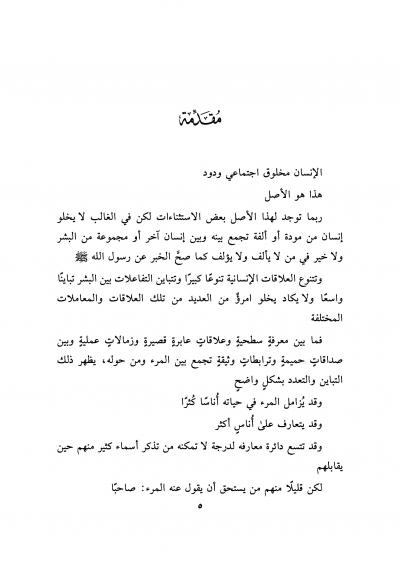 مُقَدِّمَة
الإنسان مخلوق اجتماعي ودود
هذا هو الأصل
ربما توجد لهذا الأصل بعض الاستثناءات لكن في الغالب لا يخلو
إنسان من مودة أو ألفة تجمع بينه وبين إنسان آخر أو مجموعة من البشر
ولا خير في من لا يألف ولا يؤلف كما صحَّ الخبر عن رسول الله ﷺ
وتتنوع العلاقات الإنسانية تنوعًا كبيرًا وتتباين التفاعلات بين البشر تباينًا
واسعًا ولا يكاد يخلو امرؤٌ من العديد من تلك العلاقات والمعاملات
المختلفة
فما بين معرفةٍ سطحيةٍ وعلاقاتٍ عابرةٍ قصيرةٍ وزمالاتٍ عمليةٍ وبين
صداقاتٍ حميمةٍ وترابطاتٍ وثيقةٍ تجمع بين المرء ومن حوله، يظهر ذلك
التباين والتعدد بشكلٍ واضحٍ
وقد يُزامل المرء في حياته أُناسًا كُثرًا
وقد يتعارف علىٰ أُناسٍ أكثر
وقد تتسع دائرة معارفه لدرجة لا تمكنه من تذكر أسماء كثير منهم حين
يقابلهم
لكن قليلًا منهم من يستحق أن يقول عنه المرء: صاحبًا
٥